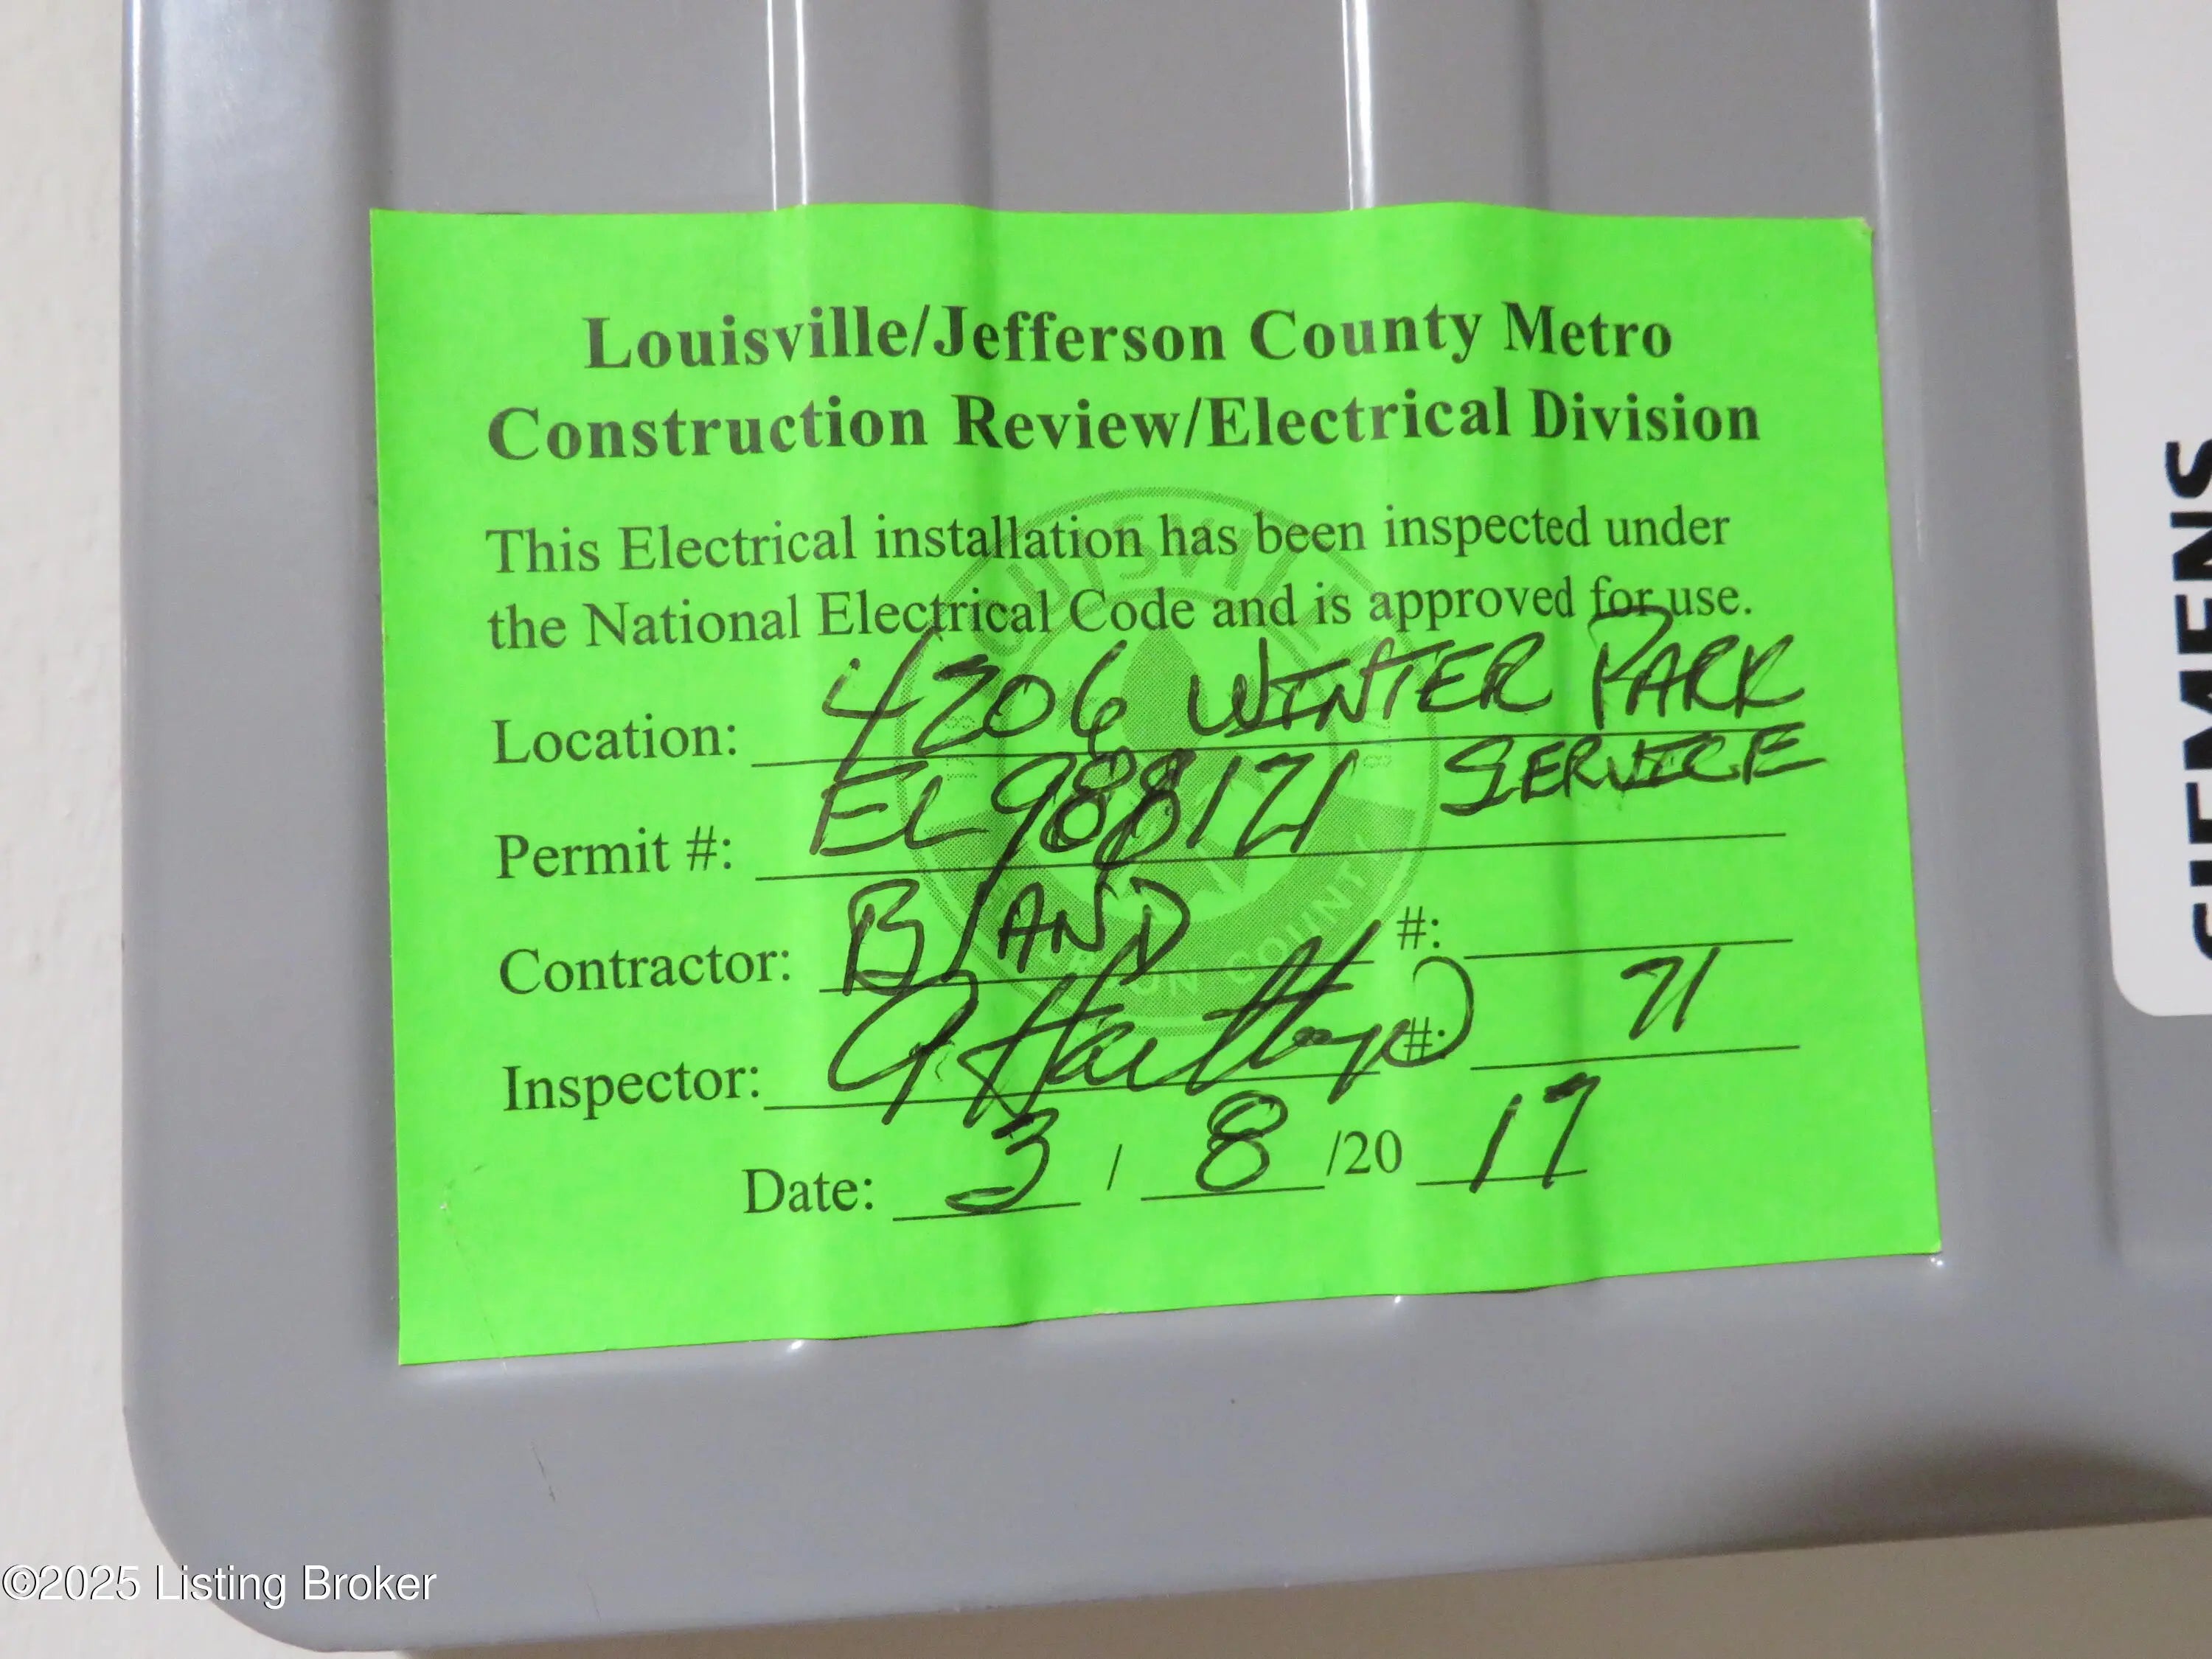 Louisville/Jefferson County Metro
Construction Review/Electrical Division
This Electrical installation has been inspected under
the National Electrical Code and is approved for use.
Location: 4206 WINTER PARK
Permit #: EL988171 SERVICE
Contractor: BLAND #:
Inspector: #: 71
Date: 3 / 8 /20 17
SIEMENS
©2025 Listing Broker